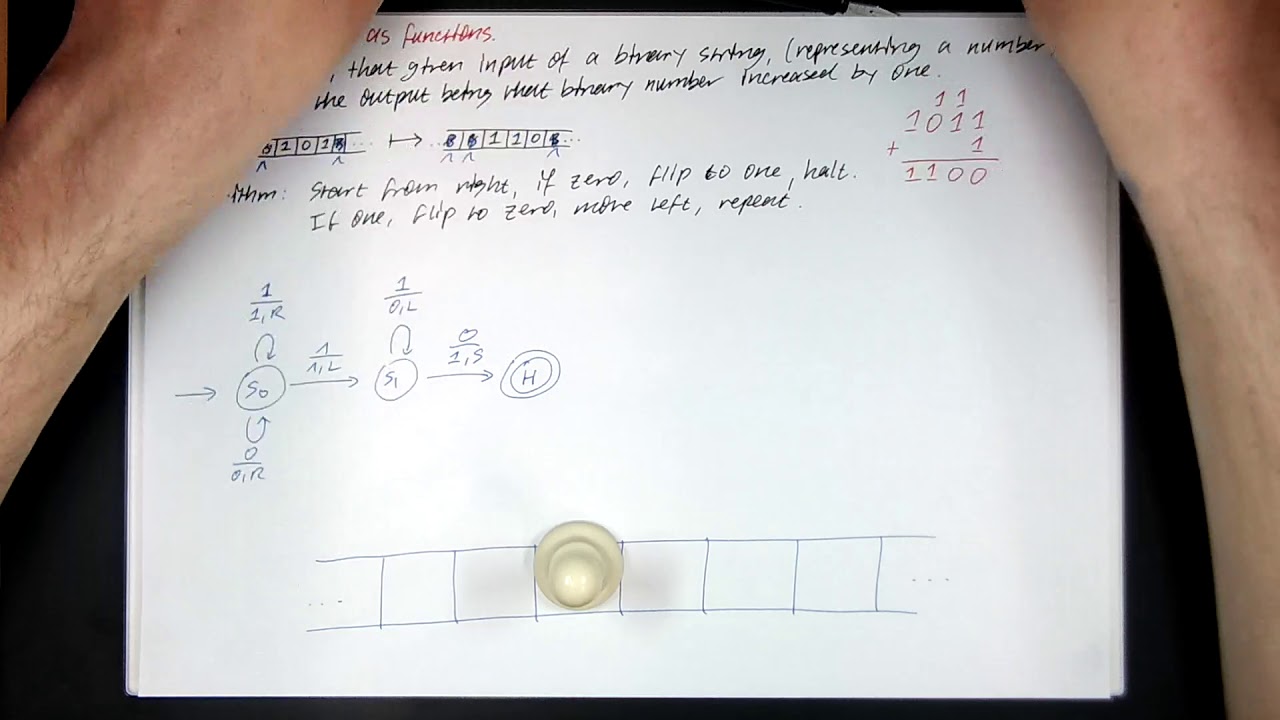 as functions.
, that given input of a binary string, (representing a number
the output being that binary number increased by one.
1 1
1011
+ 1
1100
1 0 1 ... ↦ ... 1 1 0 ...
ithm: Start from right, if zero, flip to one, halt.
If one, flip to zero, move left, repeat.
1
1,R
1
0,L
1
1,L
0
1,S
S0
S1
H
0
0,R
...
...